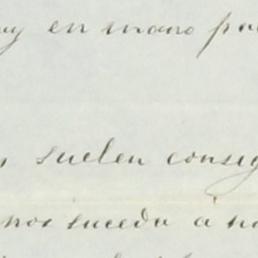 uy en mano pa
s suelen consig
nos suceda á no